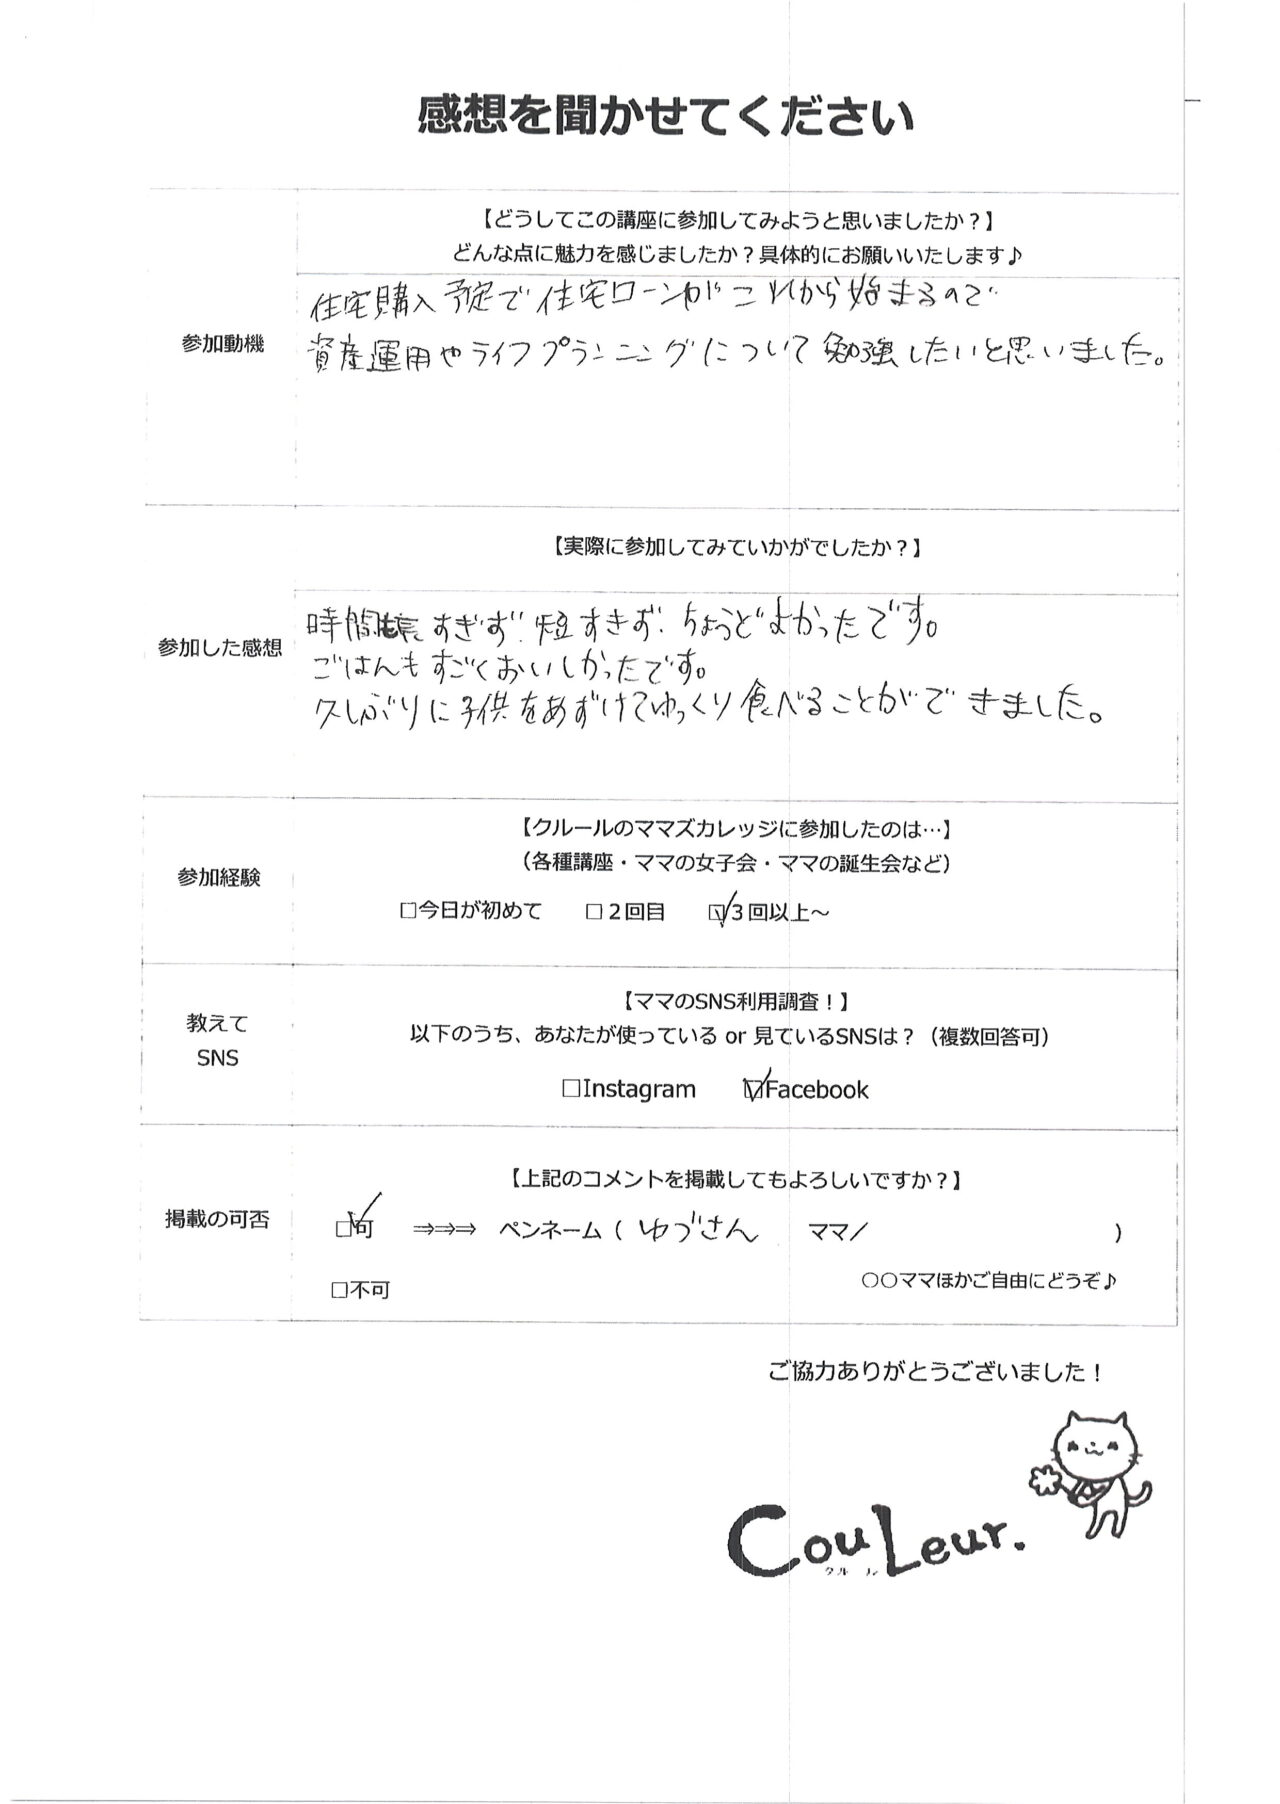 感想を聞かせてください
【どうしてこの講座に参加してみようと思いましたか？】
どんな点に魅力を感じましたか？具体的にお願いいたします♪
参加動機
住宅購入予定で住宅ローンがこれから始まるので
資産運用やライフプランニングについて勉強したいと思いました。
【実際に参加してみていかがでしたか？】
参加した感想
時間も長すぎず、短すぎず、ちょうどよかったです。
ごはんもすごくおいしかったです。
久しぶりに子供をあずけてゆっくり食べることができました。
【クルールのママズカレッジに参加したのは…】
（各種講座・ママの女子会・ママの誕生会など）
参加経験
□今日が初めて □２回目 ☑３回以上～
【ママのSNS利用調査！】
教えて
SNS
以下のうち、あなたが使っている or 見ているSNSは？（複数回答可）
□Instagram ☑Facebook
【上記のコメントを掲載してもよろしいですか？】
掲載の可否
☑可 ⇒⇒⇒ ペンネーム（ ゆづさん ママ／ ）
□不可
○○ママほかご自由にどうぞ♪
ご協力ありがとうございました！
CouLeur.
クルール